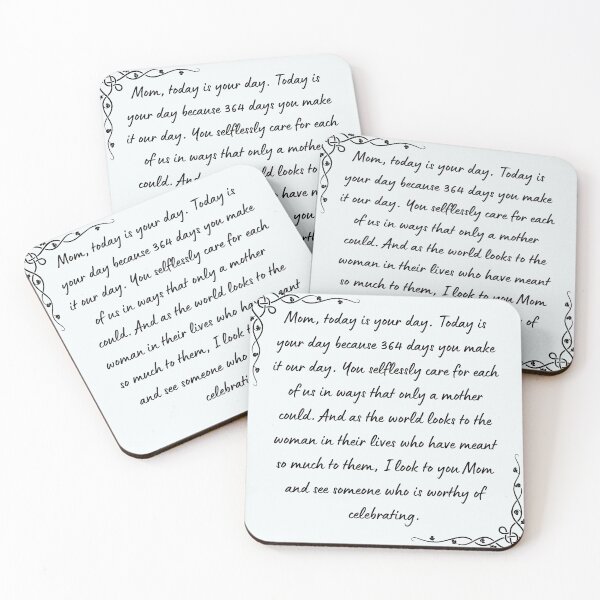 Mom, today is your day. Today is
your day because 364 days you make
it our day. You selflessly care for each
of us in ways that only a mother
could. And as the world looks to
have
you
Mom, today is your day. Today is
your day because 364 days you make
it our day. You selflessly care for each
of us in ways that only a mother
could. And as the world looks to the
woman in their lives who have meant
so much to them, I look to you Mom
of
Mom, today is your day. Today is
your day because 364 days you make
it our day. You selflessly care for each
of us in ways that only a mother
could. And as the world looks to the
woman in their lives who have meant
so much to them, I look
and see someone who
celebratin
Mom, today is your day. Today is
your day because 364 days you make
it our day. You selflessly care for each
of us in ways that only a mother
could. And as the world looks to the
woman in their lives who have meant
so much to them, I look to you Mom
and see someone who is worthy of
celebrating.